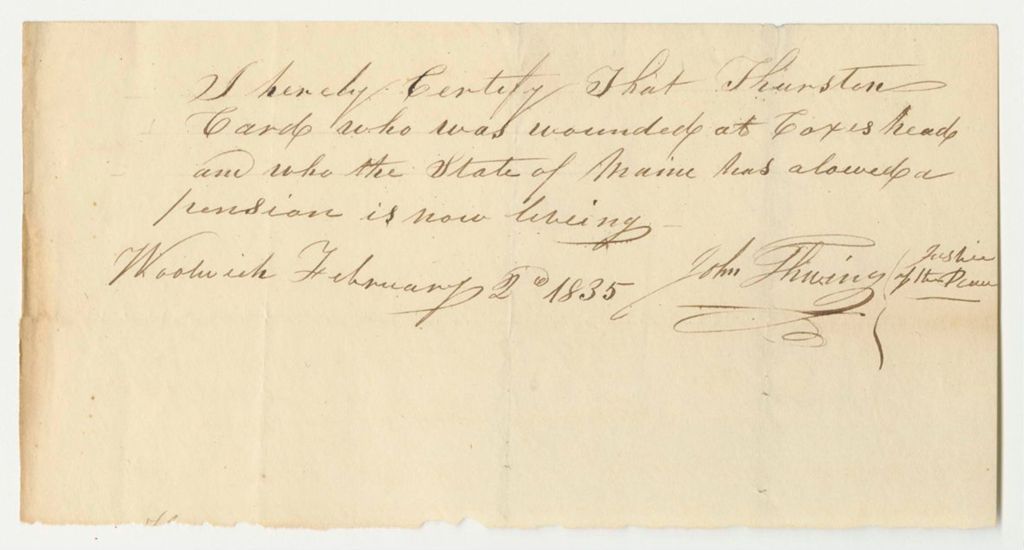 I hereby Certify That Thurston
Card who was wounded at Coxes head
and who the State of Maine has alowed a
pension is now liveing
Woolwich February 2d 1835 John Thwing Justice
of the Peace